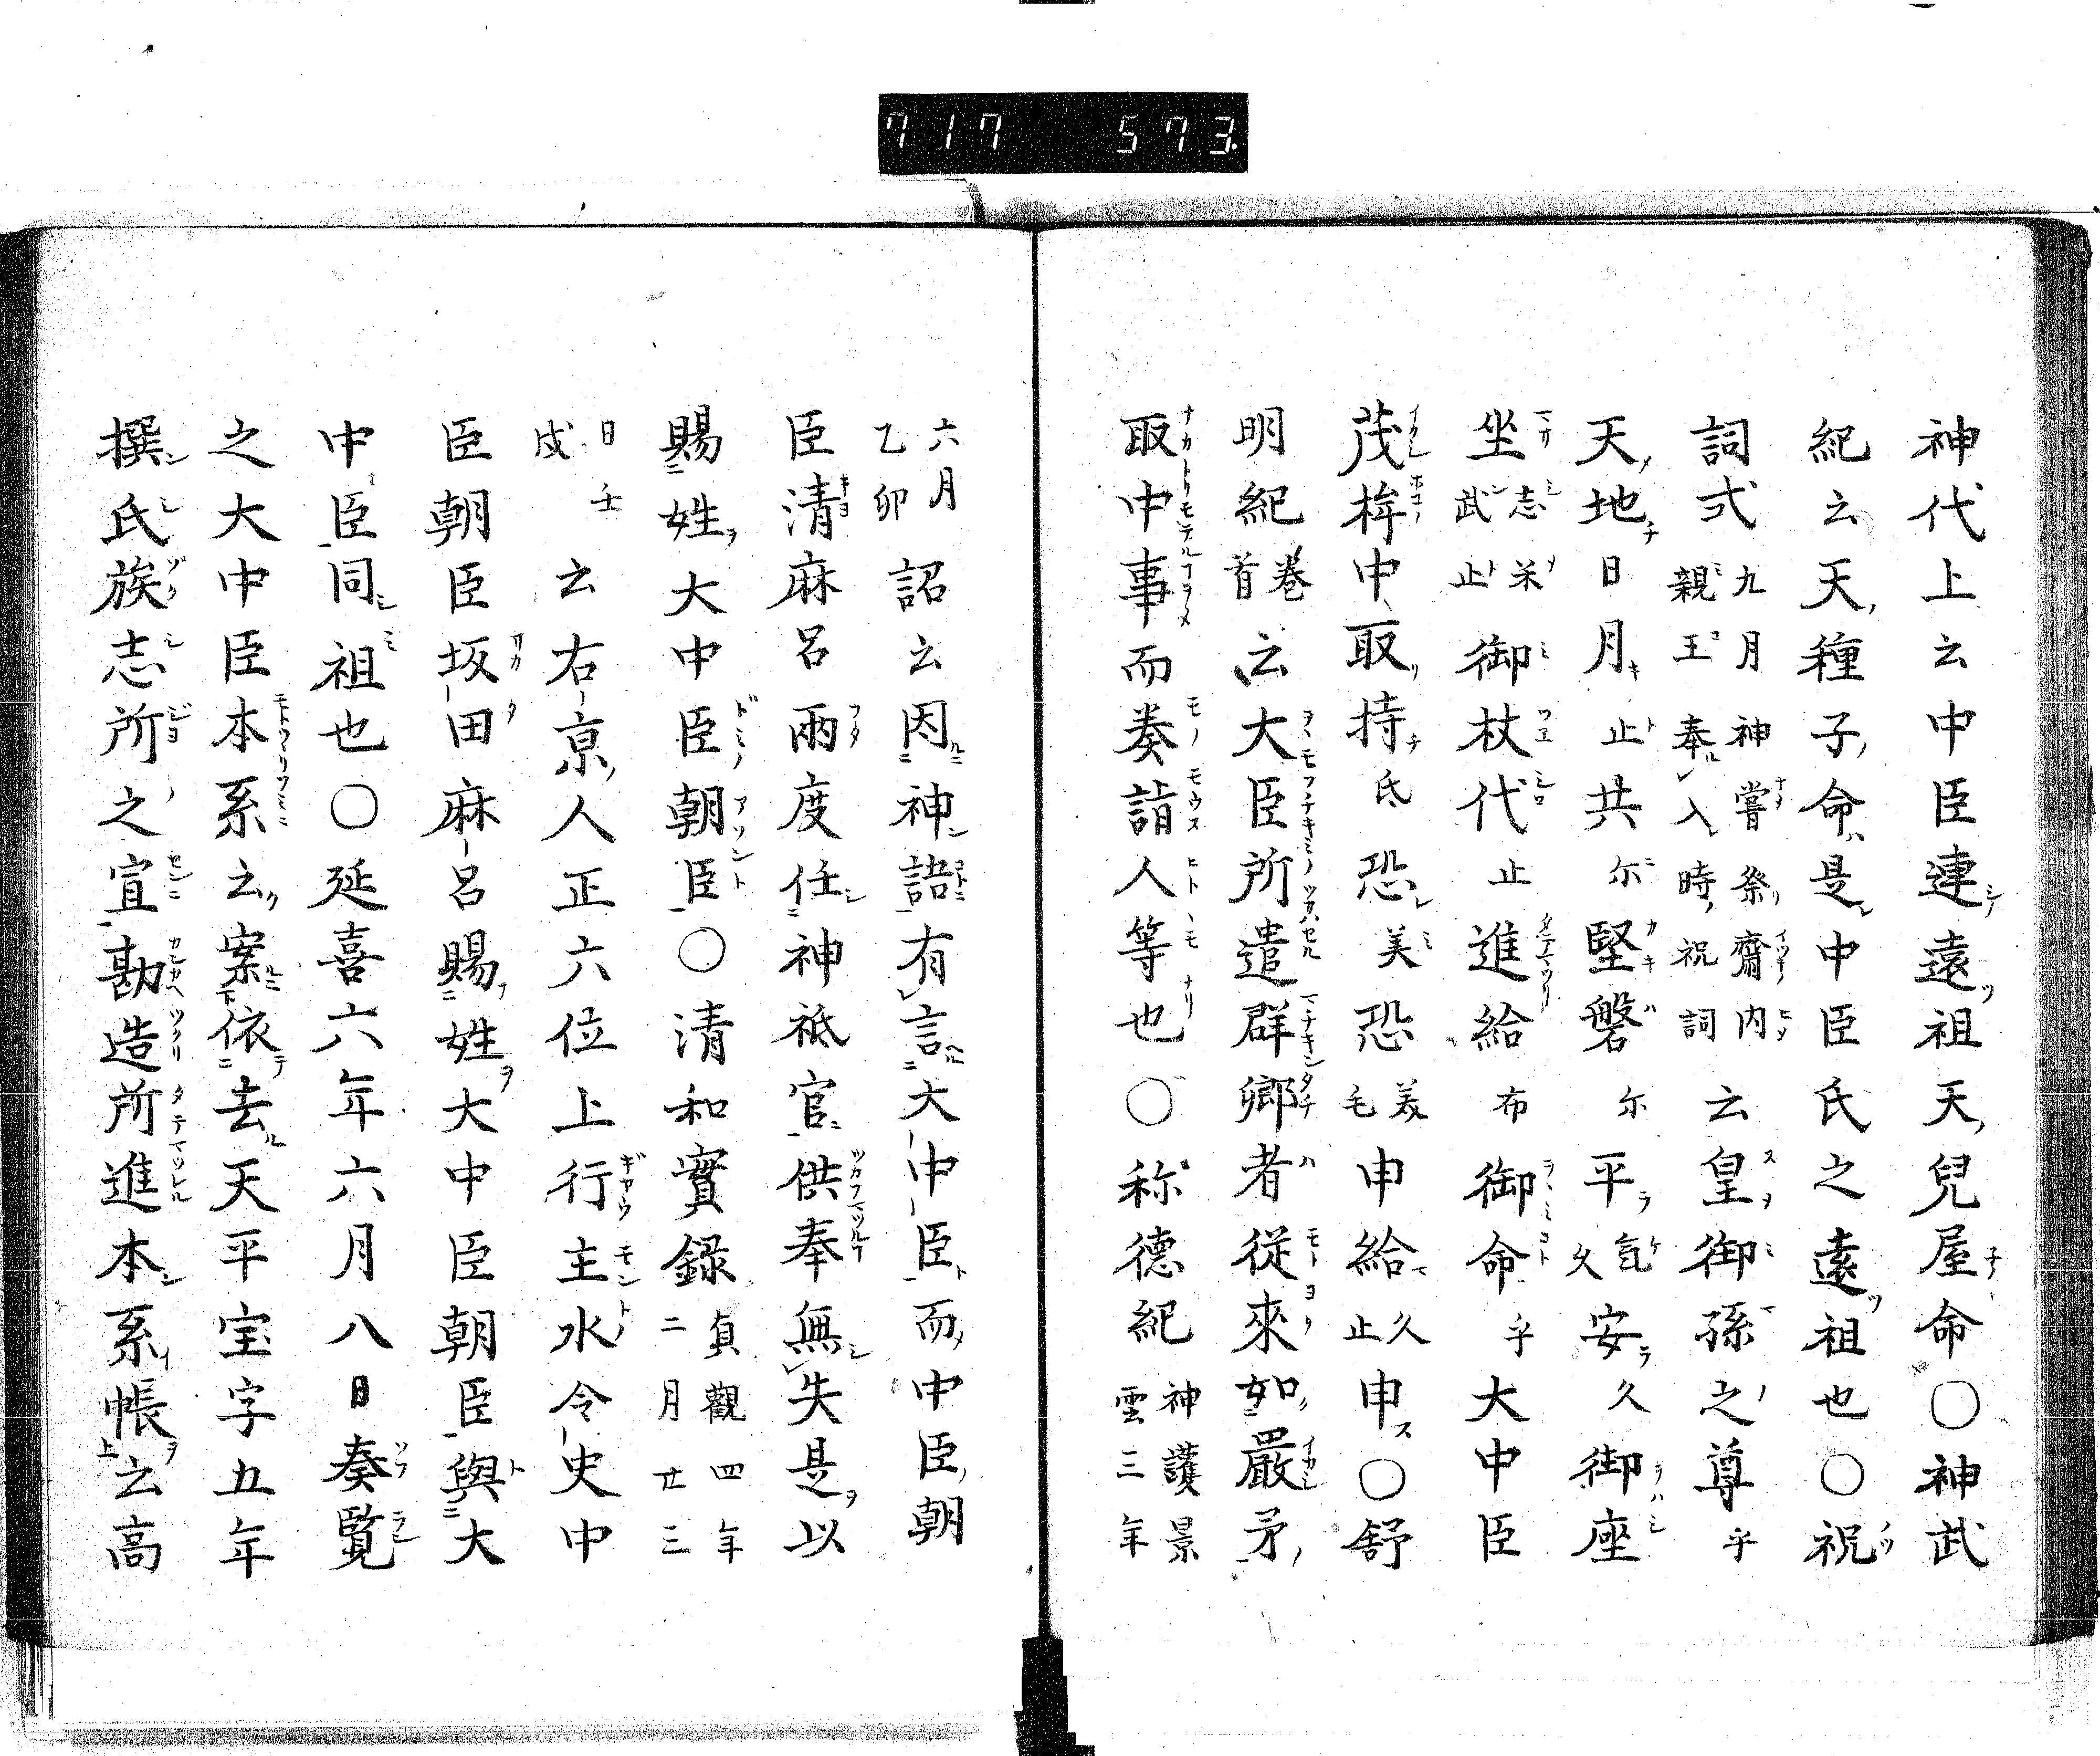 717 573
神代上云中臣連遠祖天兒屋命〇神武
紀云天種子命是中臣氏之遠祖也〇祝
詞式九月神嘗祭齋内親王奉入時祝詞云皇御孫之尊乎
天地日月止共尓堅磐尓平気久安久御座
坐志米武止御杖代止進給布御命乎大中臣
茂桙中取持氐恐美恐美毛申給久止申〇舒
明紀巻首云大臣所遣群卿者從來如嚴矛
取中事而奏請人等也〇称德紀神護景雲三年
六月乙卯詔云因神語有言大中臣而中臣朝
臣清麻呂兩度任神祇官供奉無失是以
賜姓大中臣朝臣〇清和實録貞觀四年二月廿三
日壬戌云右京人正六位上行主水令史中
臣朝臣坂田麻呂賜姓大中臣朝臣與大
中臣同祖也〇延喜六年六月八日奏覧
之大中臣本系云案依去天平宝字五年
撰氏族志所之宣勘造所進本系帳云高